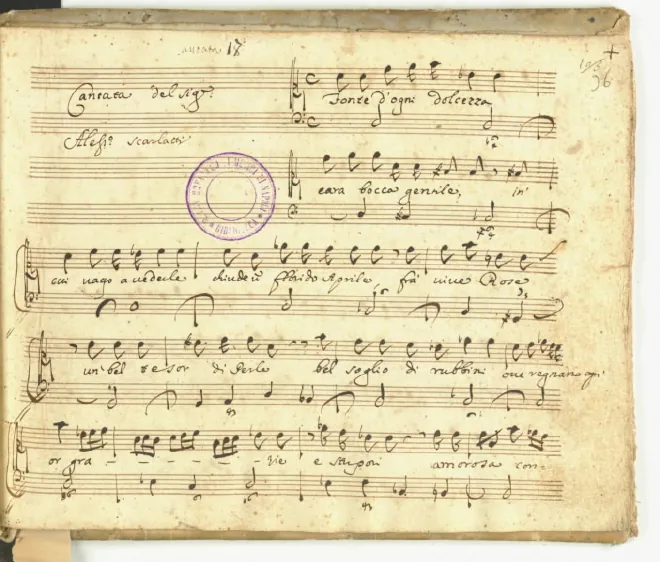 cantata 17
96
Cantata del Sigr.
Aless.o Scarlatti
Fonte d'ogni dolcezza
cara bocca gentile, in
cui vago a vederle chiude un florido Aprile frà vive Rose
un bel tesor di Perle bel soglio di rubbini ove regnan ogn'
or gra - - - - zie e stupori amorosa con-